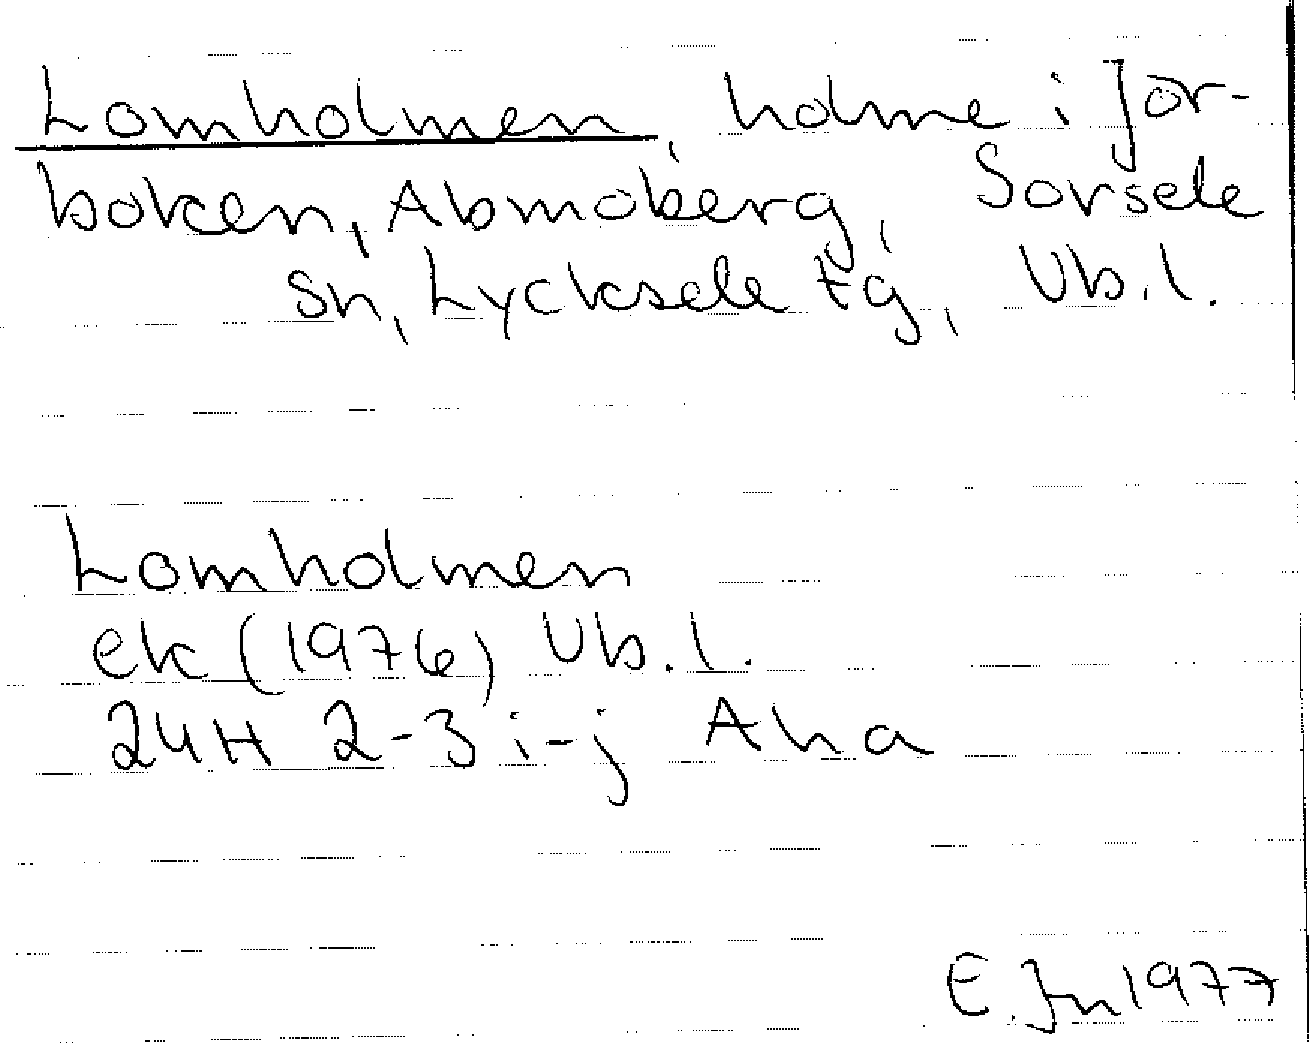 Lomholmen, holme i Jor-
boken, Abmoberg, Sorsele
sn, Lycksele tg, Vb.l.
Lomholmen
ek (1976) Vb.l.
24H 2-3 i-j Aha
E. Jn 1977